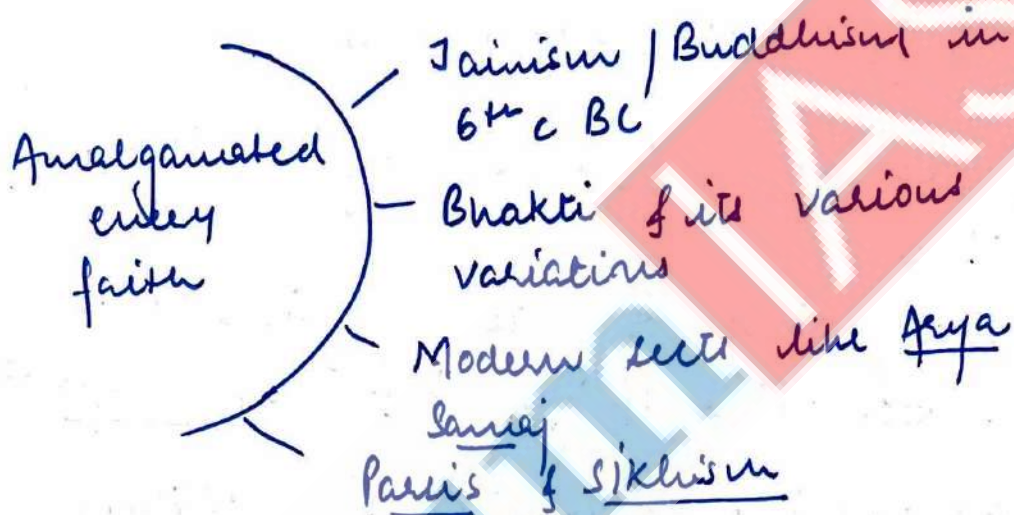 Amalgamated
every
faith
Jainism / Buddhism in
6th c BC
Bhakti & its various
variations
Modern sects like Arya
Samaj
Parsis & Sikhism
mIAS